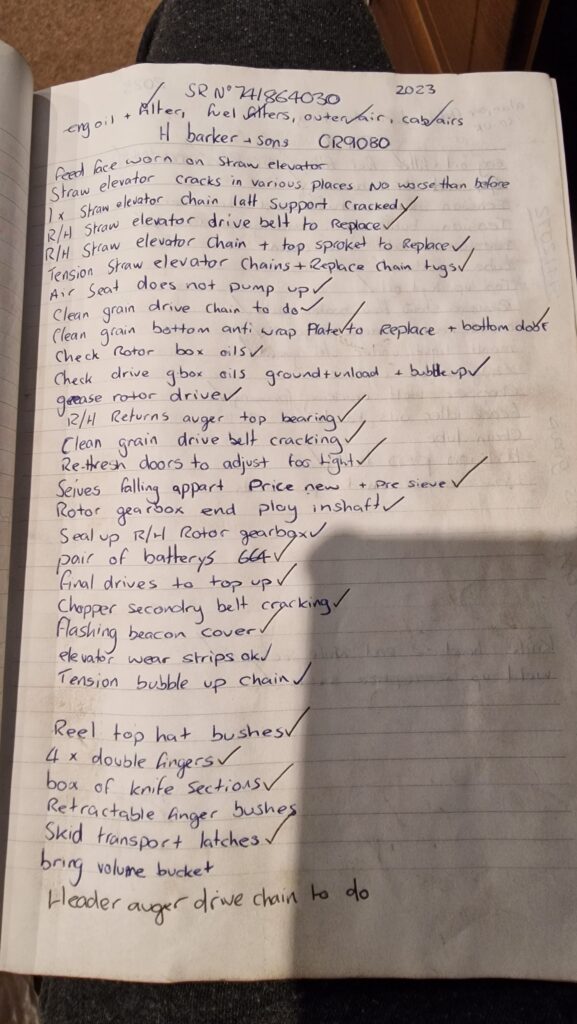 SR No 741864030 2023
eng oil + filter, fuel filters, outer/air, cab/airs
H barker + sons CR9080
feed face worn on straw elevator
Straw elevator cracks in various places No worse than before
1 x Straw elevator chain latt support cracked ✓
R/H Straw elevator drive belt to Replace ✓
R/H Straw elevator chain + top sproket to Replace ✓
Tension Straw elevator chains + Replace chain tugs ✓
Air Seat does not pump up ✓
Clean grain drive chain to do ✓
Clean grain bottom anti wrap Plate ✓ to Replace + bottom door
Check Rotor box oils ✓
Check drive gbox oils ground + unload + bubble up ✓
grease rotor drive ✓
R/H Returns auger top bearing ✓
Clean grain drive belt cracking ✓
Re-thresh doors to adjust too tight ✓
Seives falling appart Price new + Pre sieve ✓
Rotor gearbox end play inshaft ✓
Seal up R/H Rotor gearbox ✓
pair of batterys 664 ✓
final drives to top up ✓
Chopper secondry belt cracking ✓
flashing beacon cover ✓
elevator wear strips ok ✓
Tension bubble up chain ✓
Reel top hat bushes ✓
4 x double fingers ✓
box of knife sections ✓
Retractable finger bushes
Skid transport latches ✓
bring volume bucket
Header auger drive chain to do